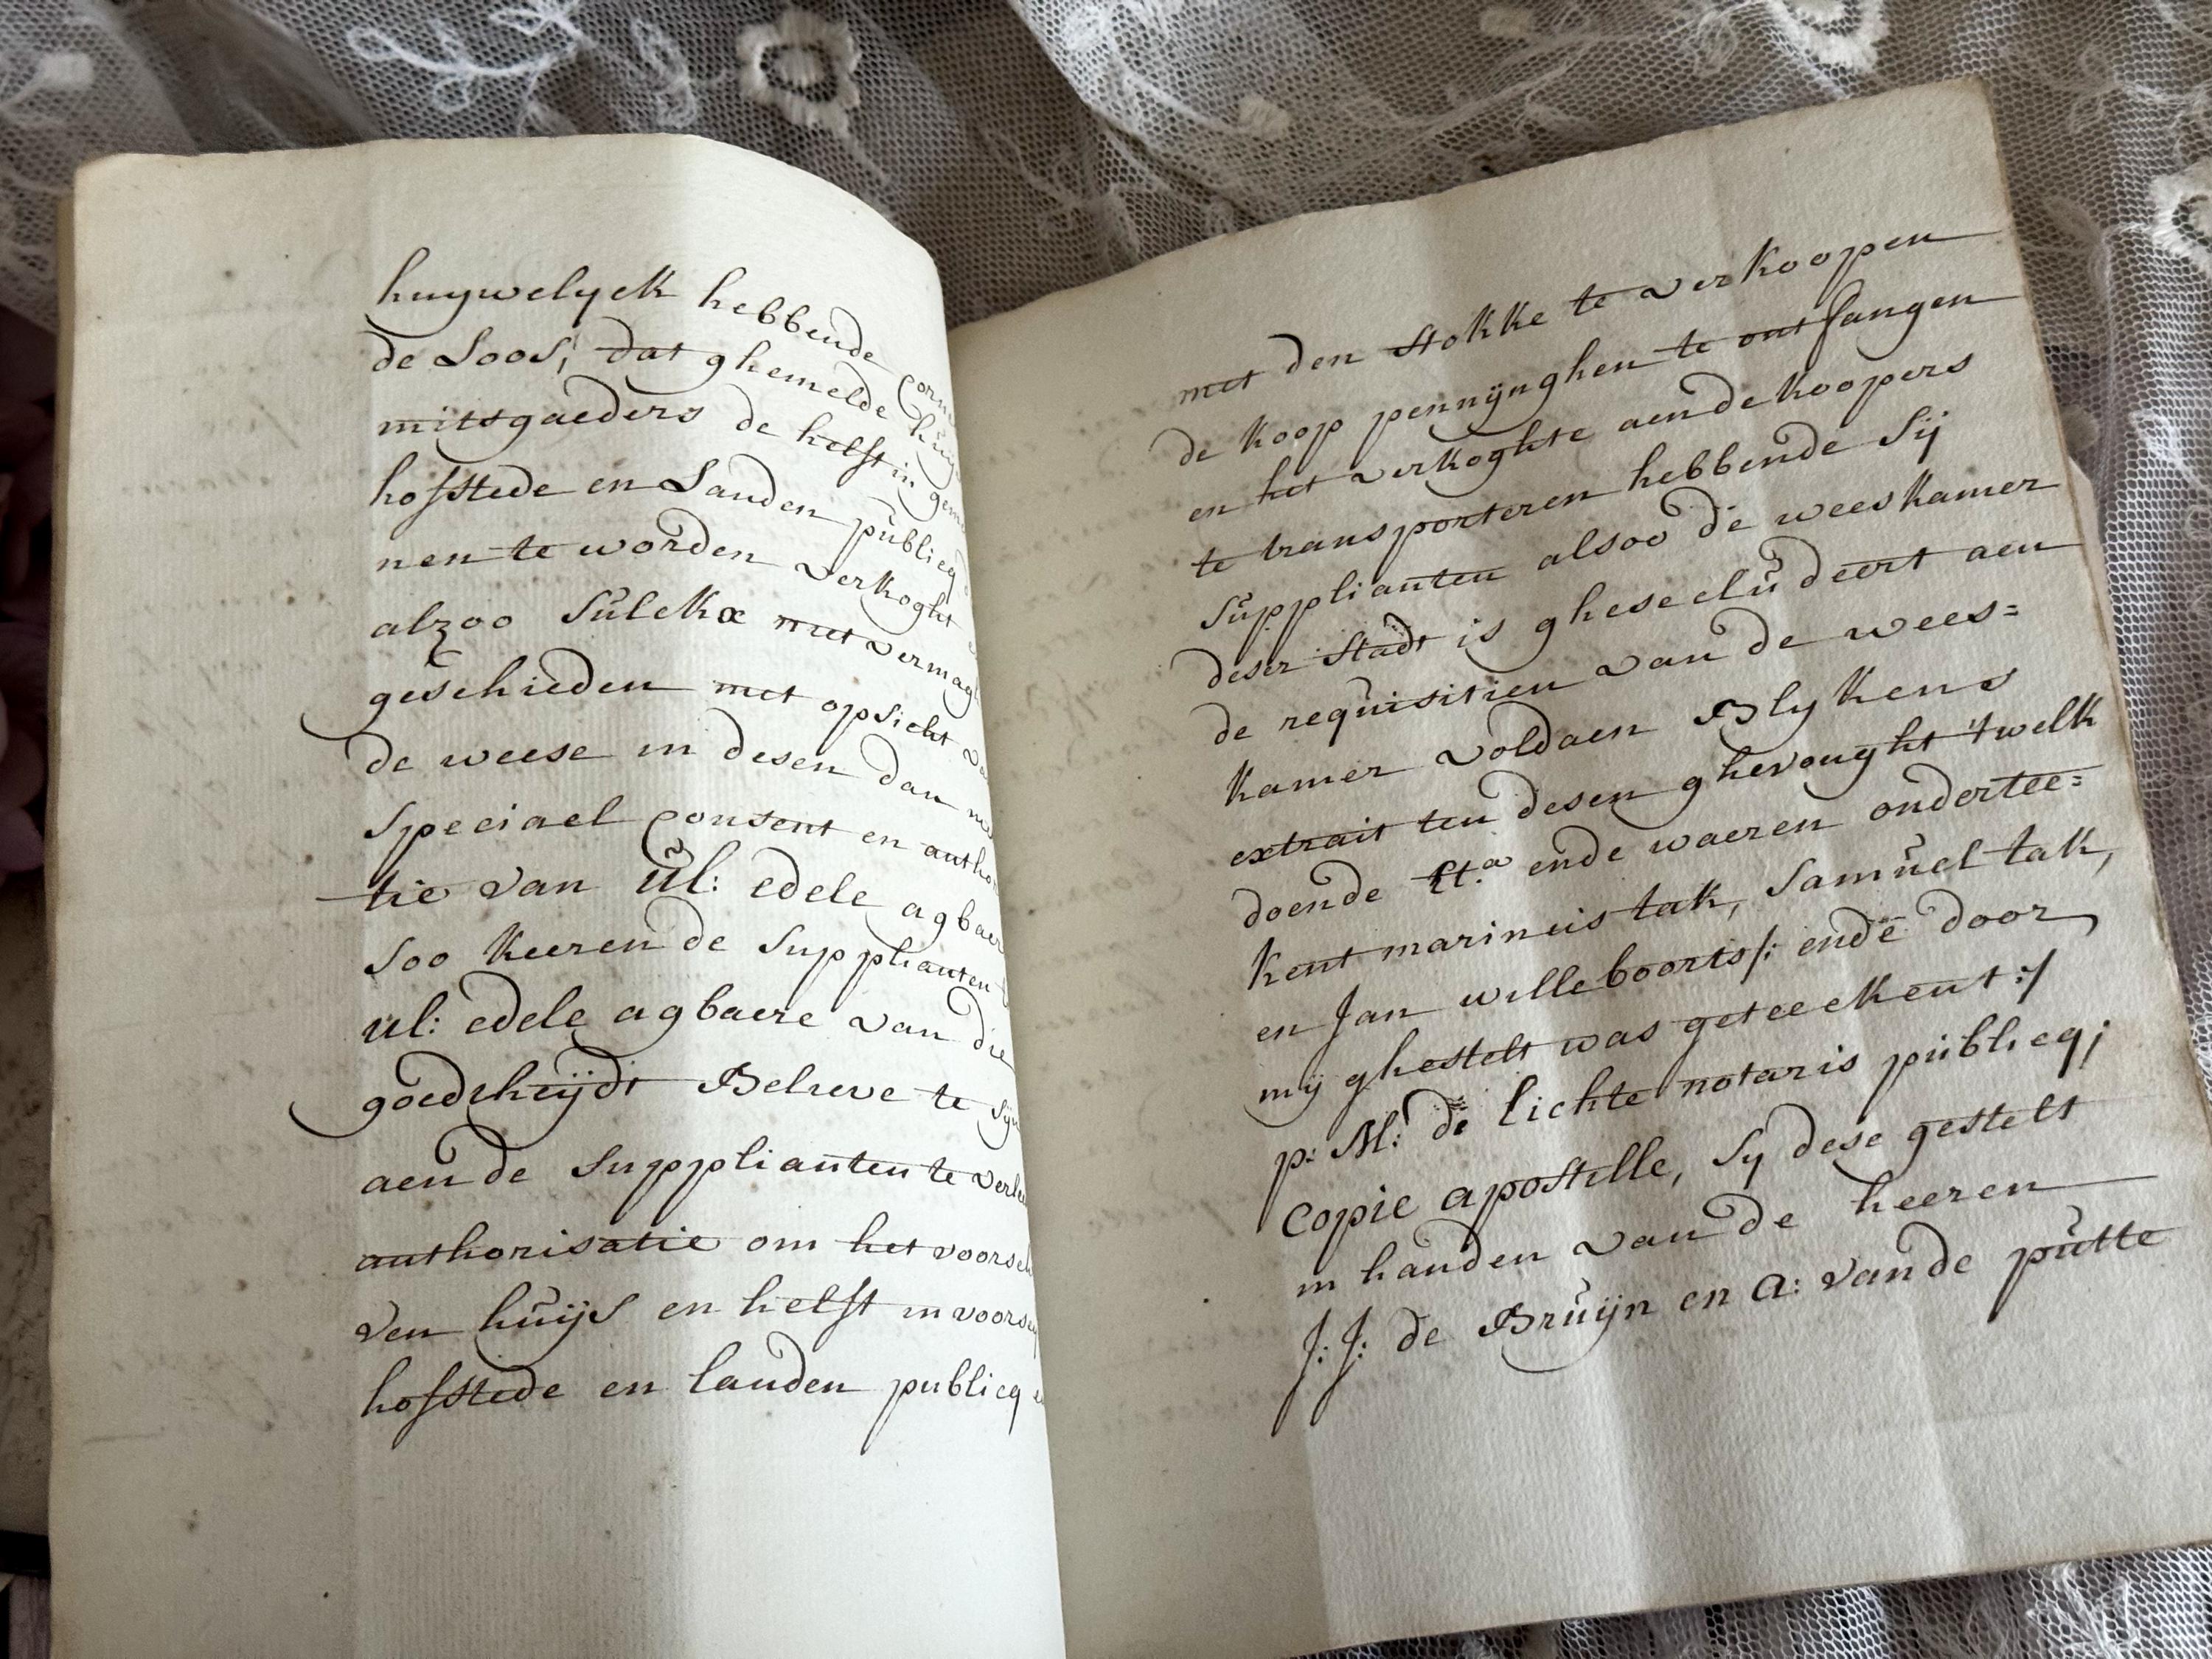 huywelyck hebbende
de Loos, dat ghemelde
mitsgaeders de helft in
hofstede en Landen publicq
nen te worden verkoght
alzoo sulckx niet vermag
geschieden met opsicht
de weese in desen dan
speciael consent en
tie van ul: edele
soo keeren de supplianten
ul: edele agbaere van die
goedtheijdt Believe te
aende supplianten te
authorisatie om het
ven huijs en helft in
hofstede en landen publicq
met den stokke te verkoopen
de koop pennijnghen te ontfangen
en het verkoghte aende koopers
te transporteren hebbende sij
supplianten alsoo de weeskamer
deser stadt is ghesecludeert aen
de requisitien van de wees=
kamer voldaen Blykens
extrait ten desen ghevought 't welk
doende &t.a ende waeren ondertee=
kent marinus tak, samuel tak,
en Jan willeboorts/: ende door
mij ghestelt was geteekent :/
p: M: de Lichte notaris publicq;
Copie apostille, sy dese gestelt
in handen van de heeren
J: J: de Bruijn en A: vande putte